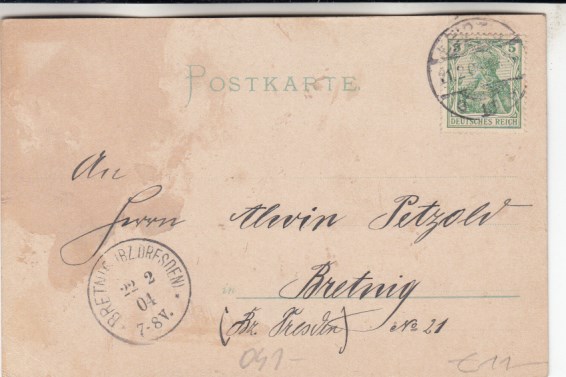 POSTKARTE
5
DEUTSCHES REICH
An
Herrn Alwin Petzold
in Bretnig
(Bz. Dresden) No 21
BRETNIG (BZ. DRESDEN)
22 2
04
7-8V.
041-